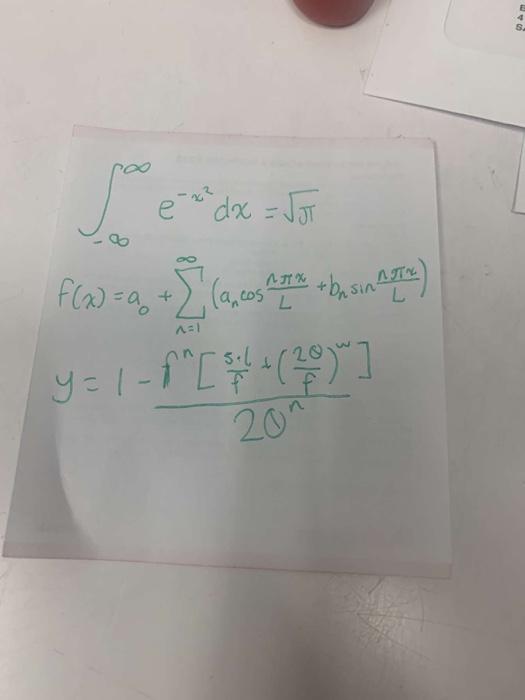 ∫_{-∞}^{∞} e^{-x²} dx = √π
f(x) = a₀ + ∑_{n=1}^{∞} (aₙ cos nπx/L + bₙ sin nπx/L)
y = 1 - fⁿ [ s·l/f + (2θ/f)^w ] / 2θⁿ